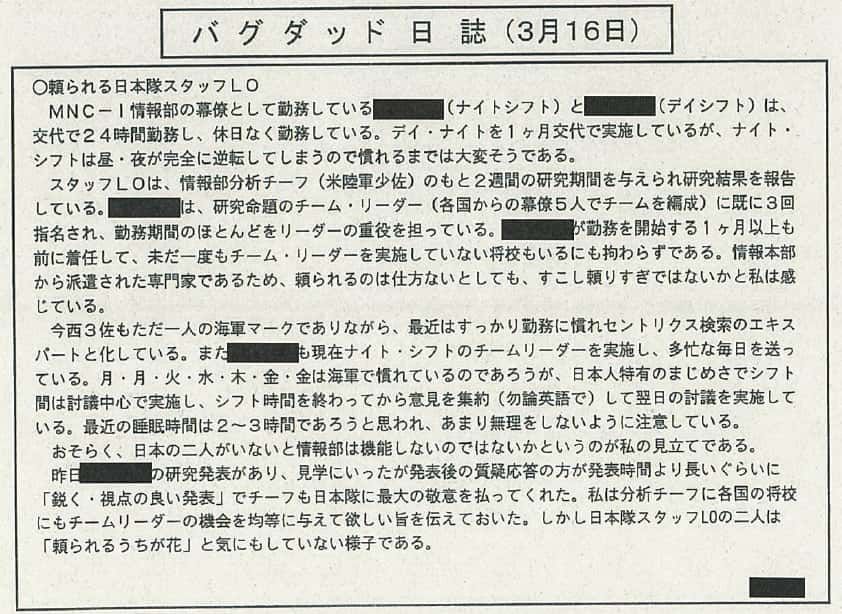 バグダッド日誌(3月16日)
○頼られる日本隊スタッフLO
MNC-I情報部の幕僚として勤務している(ナイトシフト)と(デイシフト)は、
交代で24時間勤務し、休日なく勤務している。デイ・ナイトを1ヶ月交代で実施しているが、ナイト・
シフトは昼・夜が完全に逆転してしまうので慣れるまでは大変そうである。
スタッフLOは、情報部分析チーフ(米陸軍少佐)のもと2週間の研究期間を与えられ研究結果を報告
している。は、研究命題のチーム・リーダー(各国からの幕僚5人でチームを編成)に既に3回
指名され、勤務期間のほとんどをリーダーの重役を担っている。が勤務を開始する1ヶ月以上も
前に着任して、未だ一度もチーム・リーダーを実施していない将校もいるにも拘わらずである。情報本部
から派遣された専門家であるため、頼られるのは仕方ないとしても、すこし頼りすぎではないかと私は感
じている。
今西3佐もただ一人の海軍マークでありながら、最近はすっかり勤務に慣れセントリクス検索のエキス
パートと化している。またも現在ナイト・シフトのチームリーダーを実施し、多忙な毎日を送っ
ている。月・月・火・水・木・金・金は海軍で慣れているのであろうが、日本人特有のまじめさでシフト
間は討議中心で実施し、シフト時間を終わってから意見を集約(勿論英語で)して翌日の討議を実施して
いる。最近の睡眠時間は2~3時間であろうと思われ、あまり無理をしないように注意している。
おそらく、日本の二人がいないと情報部は機能しないのではないかというのが私の見立てである。
昨日の研究発表があり、見学にいったが発表後の質疑応答の方が発表時間より長いぐらいに
「鋭く・視点の良い発表」でチーフも日本隊に最大の敬意を払ってくれた。私は分析チーフに各国の将校
にもチームリーダーの機会を均等に与えて欲しい旨を伝えておいた。しかし日本隊スタッフLOの二人は
「頼られるうちが花」と気にもしていない様子である。